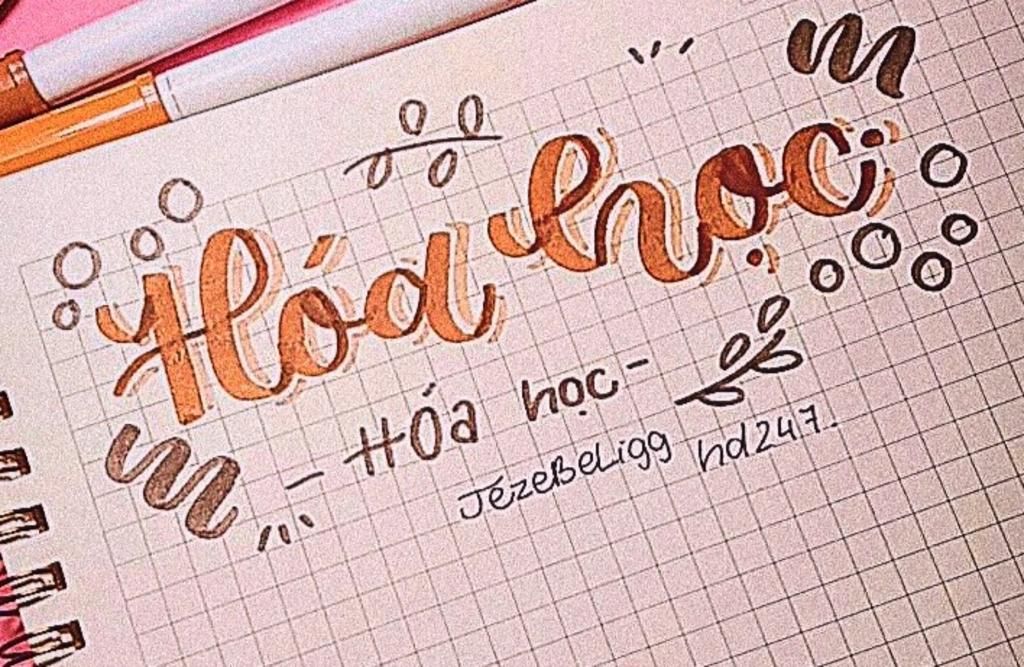 Hóa học
- Hóa học -
JézeBeLigg hd247.